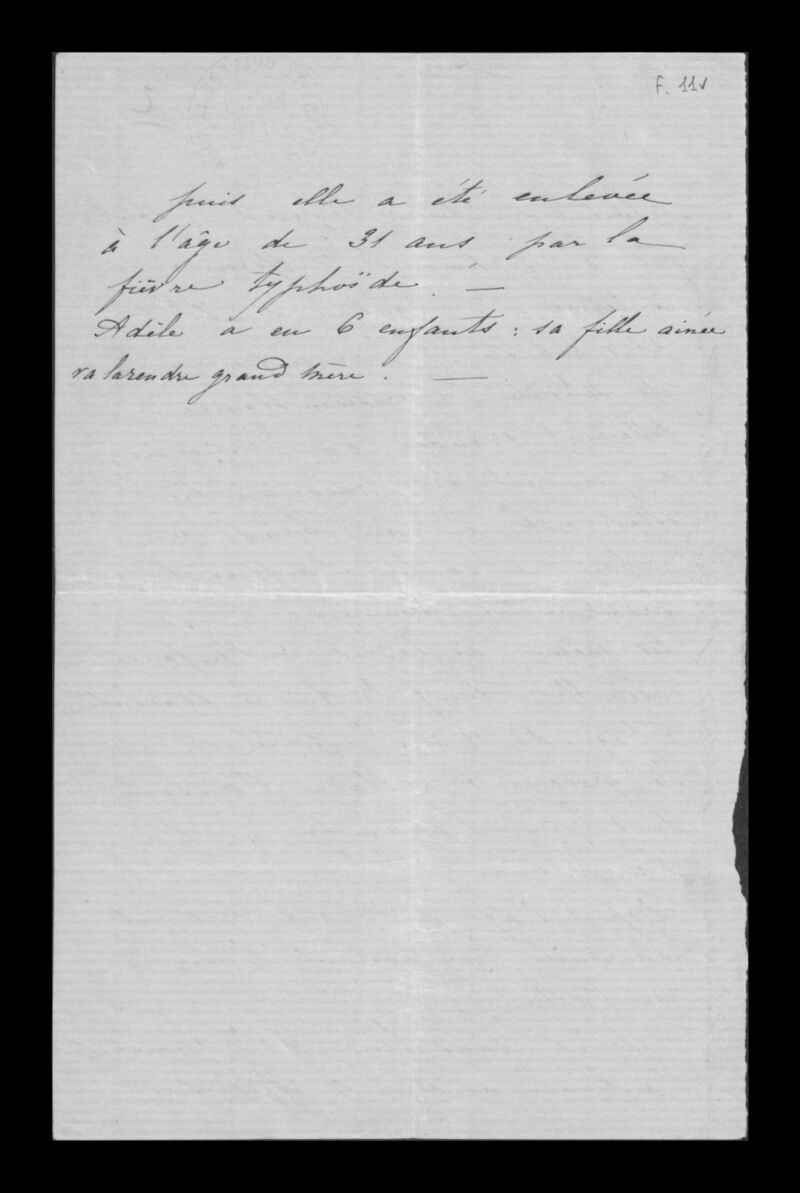 F. 11v
puis elle a été enlevée
à l'âge de 31 ans par la
fièvre typhoïde. —
Adèle a eu 6 enfants : sa fille ainée
va la rendre grand mère. —